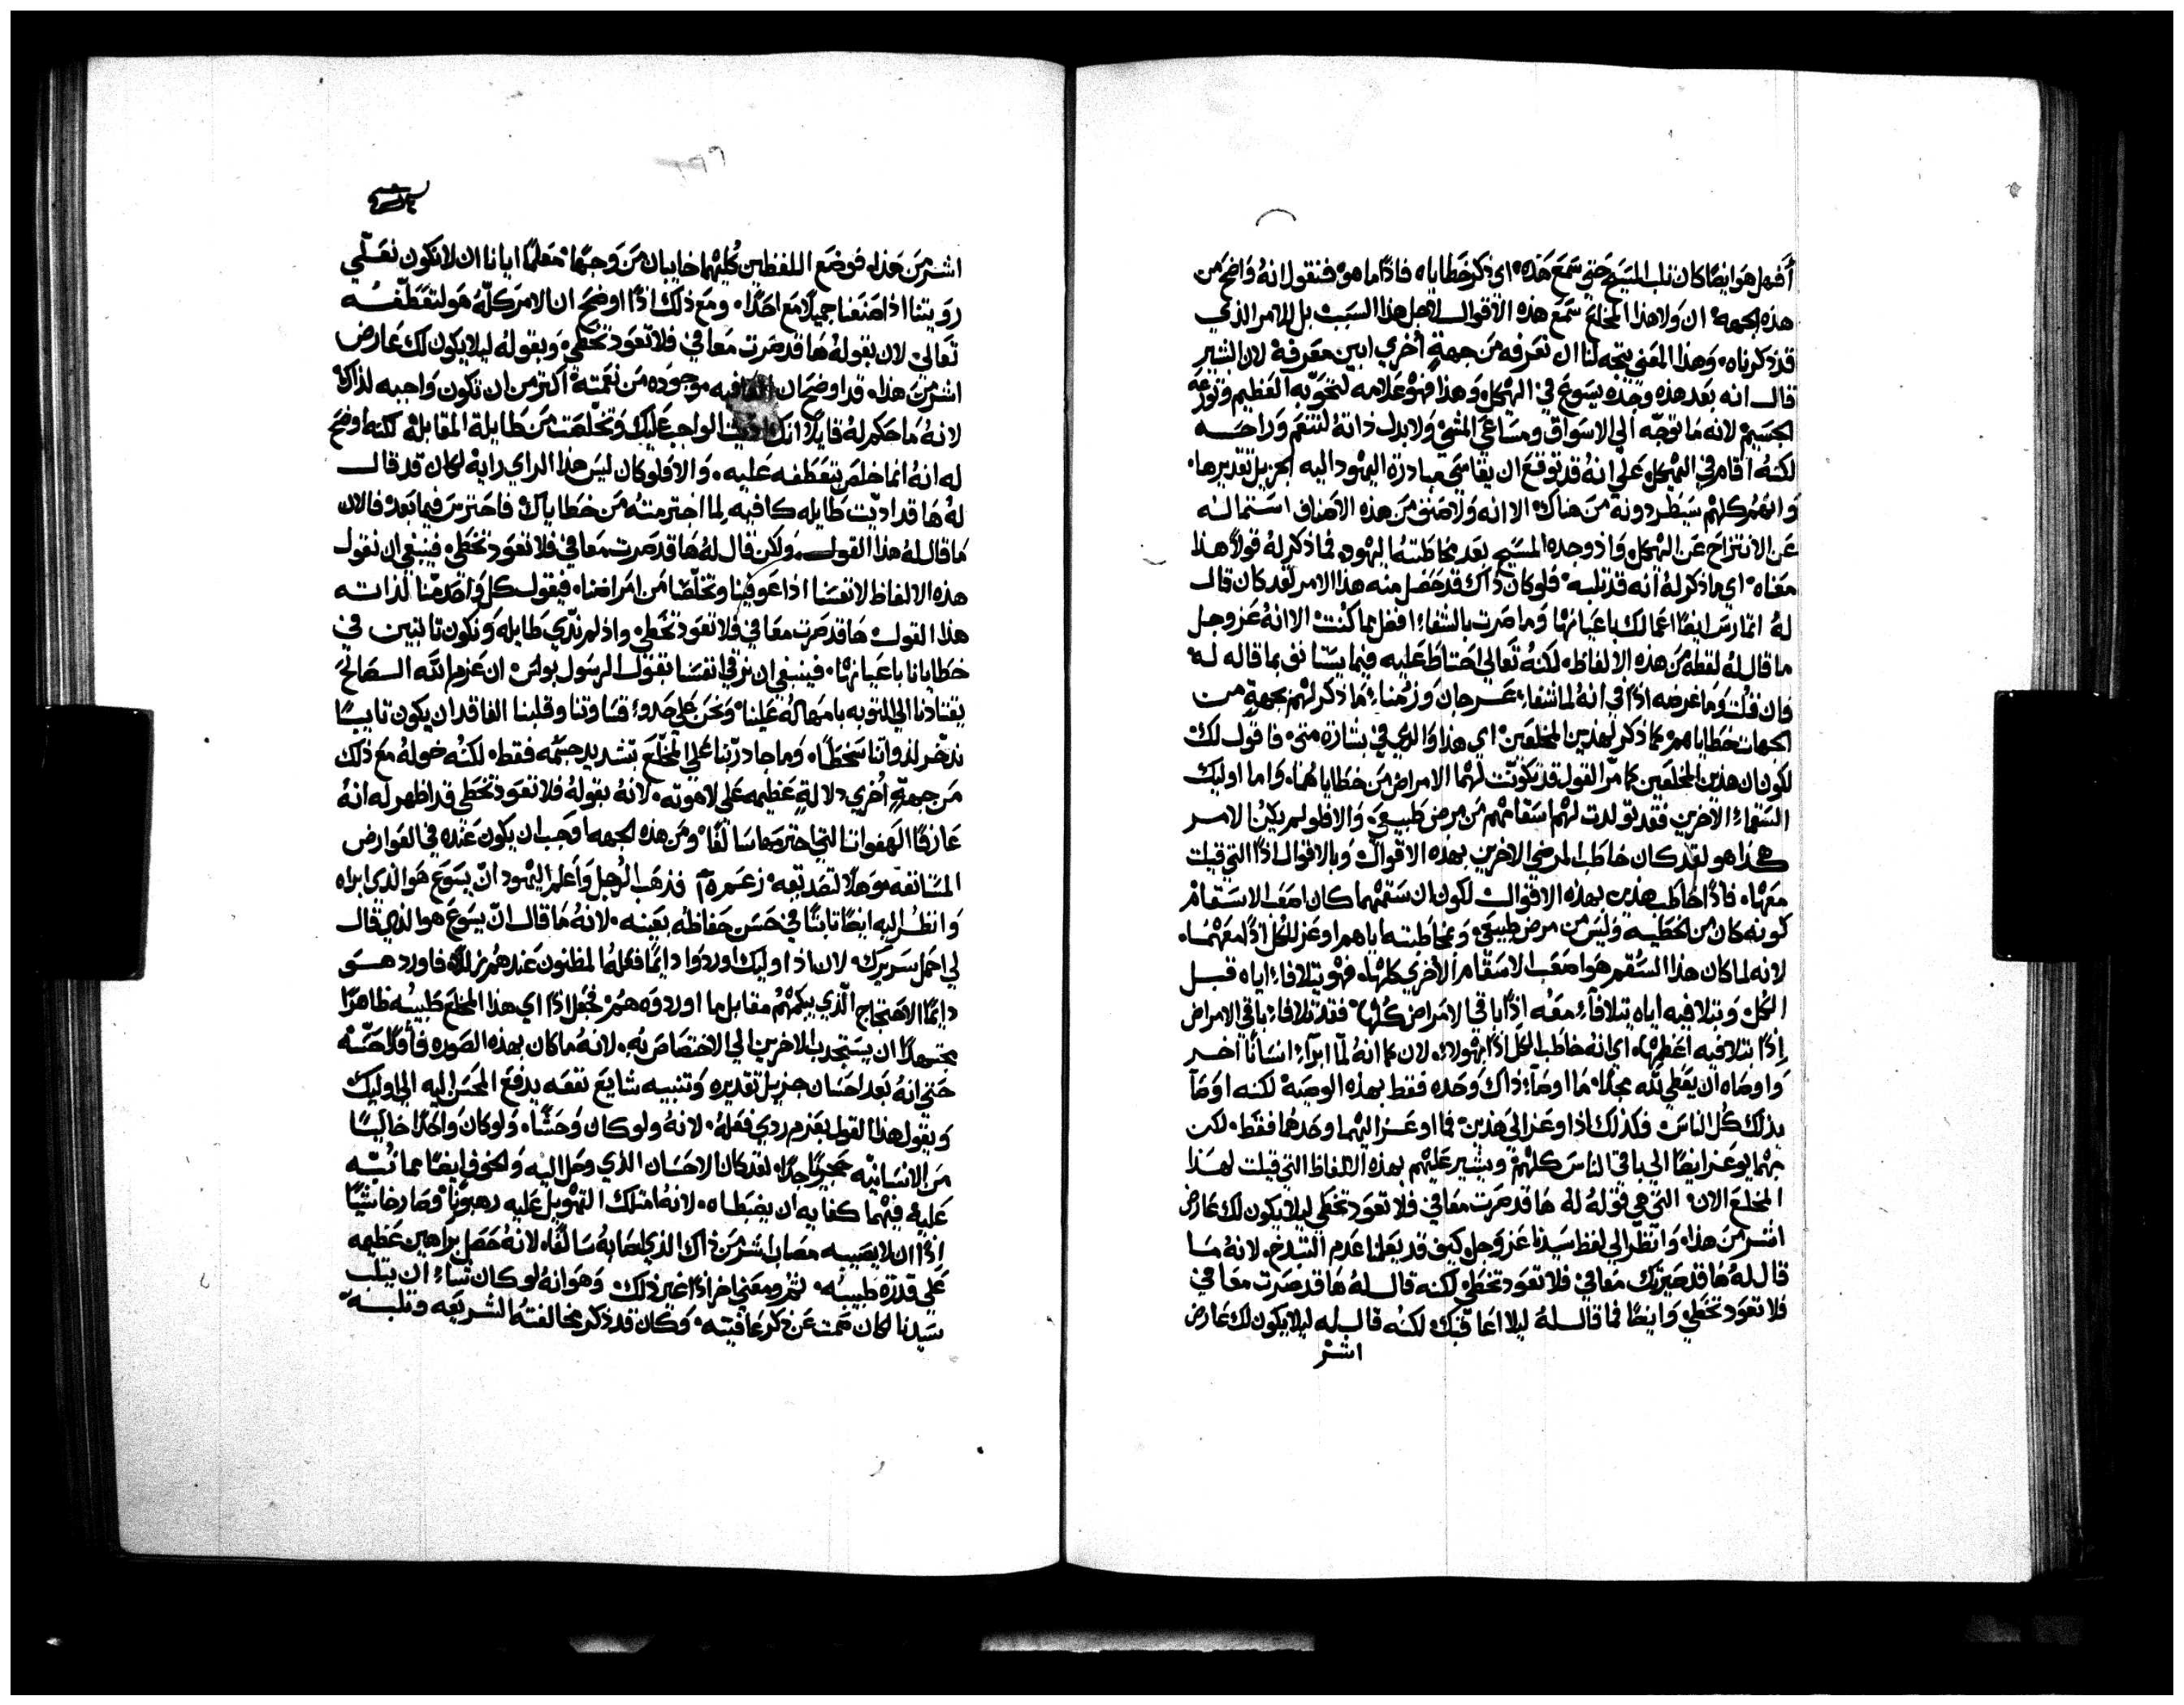 أفهل هو ايضًا كان ثلب المسيح حتي سمع هذه اي ذكر خطاياه فاذًا ما هو فنقول انه واضح من
هذه الجهه ان ولا هذا المخلع سمع هذه الاقوال لاجل هذا السبب بل للامر الذي
قد ذكرناه وهذا المعني يتجه لنا ان نعرفه من جهةٍ أخري ابين معرفة لان البشير
قال انه بعد هذه وجده يسوع في الهيكل وهذا فهو علامه لتحوبه العظيم وتورعه
الجسيم لانه ما توجّه الي الاسواق ومساعي المشي ولا بذل ذاته لتنعم وراحه
لكنه اقام في الهيكل علي انه قد توقع ان يقاسي مبادرة اليهود اليه الجزيل تقديرها
وانهم كلهم سيطردونه من هناك الا انه ولا صنف من هذه الاصناف استماله
عن الانتزاح عن الهيكل واذ وجده المسيح بعد مخاطبته اليهود فما ذكر له قولًا هذا
معناه اي ما ذكر له انه قد ثلبه فلو كان ذاك قد حصل منه هذا الامر لقد كان قال
له اتمارس ايضًا اعمالك باعيانها وما صرت بالشفاء افضل مما كنت الا انه عز وجل
ما قال له لفظه من هذه الالفاظ لكنه تعالي احتاط عليه فيما يستانف بما قاله له
فان قلت وما غرضه اذًا في انه لما شفاء عرجان وزمناء ما ذكر لهم بجهةٍ من
الجهات خطاياهم كما ذكر لهذين المخلعين اي هذا والذي في بشارة متي فاقول لك
لكون ان هذين المخلعين كما مرّ القول قد تكونت لهما الامراض من خطاياهما واما اوليك
السقماء الاخرين فقد تولدت لهم اسقامهم من مرض طبيعي والا فلو لم يكن الامر
هذا هو لقد كان خاطب المرضي الاخرين بهذه الاقوال وبالاقوال اذًا التي قيلت
معها فاذًا خاطب هذين بهذه الاقوال لكون ان سقمهما كان اصعب الاسقام
كونه كان من الخطيه وليس من مرض طبيعي وبمخاطبته اياهم اوعز للكل اذًا معهما
لانه لما كان هذا السقم هو اصعب الاسقام الاخري كلها فهو يتلافاء اياه قبل
الكل وبتلافيه اياه يتلافاء معه اذًا باقي الامراض كلها فقد تلافاء باقي الامراض
اذًا بتلافيه اعظمها اي انه خاطب الكل اذًا بهولاء لان كما انه لمّا ابراء انسانًا اخر
واوصاه ان يعطي لله مجدًا ما اوصاء ذاك وحده فقط بهذه الوصية لكنه اوصاَ
بذلك كل الناس فكذلك اذا اوعز الي هذين فما اوعز اليهما وحدهما فقط لكن
بهما يوعز ايضًا الي باقي الناس كلهم ويشير عليهم بهذه الالفاظ التي قيلت لهذا
المخلع الان التي هي قوله له ها قد صرت معافي فلا تعود تخطي ليلا يكون لك عارض
اشر من هذا وانظر الي لفظ سيدنا عز وجل كيف قد يعلمنا عدم التبذخ لانه ما
قال له ها قد صيرتك معافي فلا تعود تخطي لكنه قال له ها قد صرت معافي
فلا تعود تخطي وايضًا فما قال له ليلا اعاقبك لكنه قال له ليلا يكون لك عارض
اشر
اشر من هذا فوضع اللفظين كليهما خايبان من وجهًا معلمًا ايانا ان لا نكون نعلّي
رويتنا اذا صنعنا جميلًا مع احدًا ومع ذلك اذًا اوضح ان الامر كلّه هو لتعطّفه
تعالي لان بقوله ها قد صرت معافي فلا تعود تخطي وبقوله ليلا يكون لك عارض
اشر من هذا قد اوضح ان العافيه موجوده من نعمته اكثر من ان تكون واجبه لذاك
لانه ما حكم له قايلًا انك اديت الواجب عليك وتخلصت من طايلة المقابلة لكنه اوضح
له انه انما خلص بتعطفه عليه والا فلو كان ليس هذا الراي رايه لكان قد قال
له ها قد اديّت طايله كافيه لما اجترمته من خطاياك فاحترس فيما بعد فالان
ما قال له هذا القول ولكن قال له ها قد صرت معافي فلا تعود تخطي فينبغي ان نقول
هذه الالفاظ لانفسنا اذا عوفينا وتخلّصنا من امراضنا فيقول كل واحد منا لذاته
هذا القول ها قد صرت معافي فلا تعود تخطي واذ لم نؤدي طايله ونكون تابتين في
خطايانا باعيانها فينبغي ان نرقي انفسنا بقول الرسول بولس ان عزم الله الصالح
يقتادنا الي التوبه بامهاله علينا ونحن علي حذو قساوتنا وقلبنا الفاقد ان يكون تايبًا
ندّخر لذواتنا سخطًا وما جاد ربّنا علي المخلّع بتشديد جسمه فقط لكنه خوله مع ذلك
من جهةٍ أخري دلالةٍ عظيمه علي لاهوته لانه بقوله فلا تعود تخطي قد اظهر له انه
عارفًا الهفواتنا التي اجترمها سالفًا ومن هذه الجهه اوجب ان يكون عنده في العوارض
المستانفه موهلًا لتصديقه زعمرة فذهب الرجل واعلم اليهود انّ يسوع هو الذي ابراه
وانظر اليه ايضًا ثابتًا في حسن حفاظه بعينه لانه ما قال انّ يسوع هو الذي قال
لي احمل سريرك لان اذ اوليك اوردوا دايمًا فعله المظنون عندهم زللًا فاورد هو
دايمًا الاحتجاج الّذي يبكمهم مقابل ما اوردوه هم فجعل اذًا اي هذا المخلع طبيبه ظاهرًا
مجتهدًا ان يستجذب الاخرين الي الاختصاص به لانه ما كان بهذه الصوره فاقدًا حسّه
حتي انه بعد احسان جزيل تقديره وتنبيه شايع نفعه يدفع المحسن اليه الي اوليك
ويقول هذا القول بعزم ردي فعله لانه ولو كان وحشًا ولو كان واحدًا خاليًا
من الانسانيه حجريًا جدًا لقد كان الاحسان الذي وصل اليه والخوف ايضًا مما نُبّه
عليه فيهما كفايه ان يضبطاه لانه امتلك التهويل عليه رهبونًا وصار خايبًا
اذًا ان لا يصيبه مصاب اشر من ذاك الذي اصابه سالفًا لانه حصل براهين عظيمه
علي قدرة طبيبه ثم ومعني اخر اذًا غير ذلك وهو انه لو كان شاء ان يثلب
سيدنا لكان صمت عن ذكر عافيته وكان قد ذكر مخالفته الشريعه وثلبه